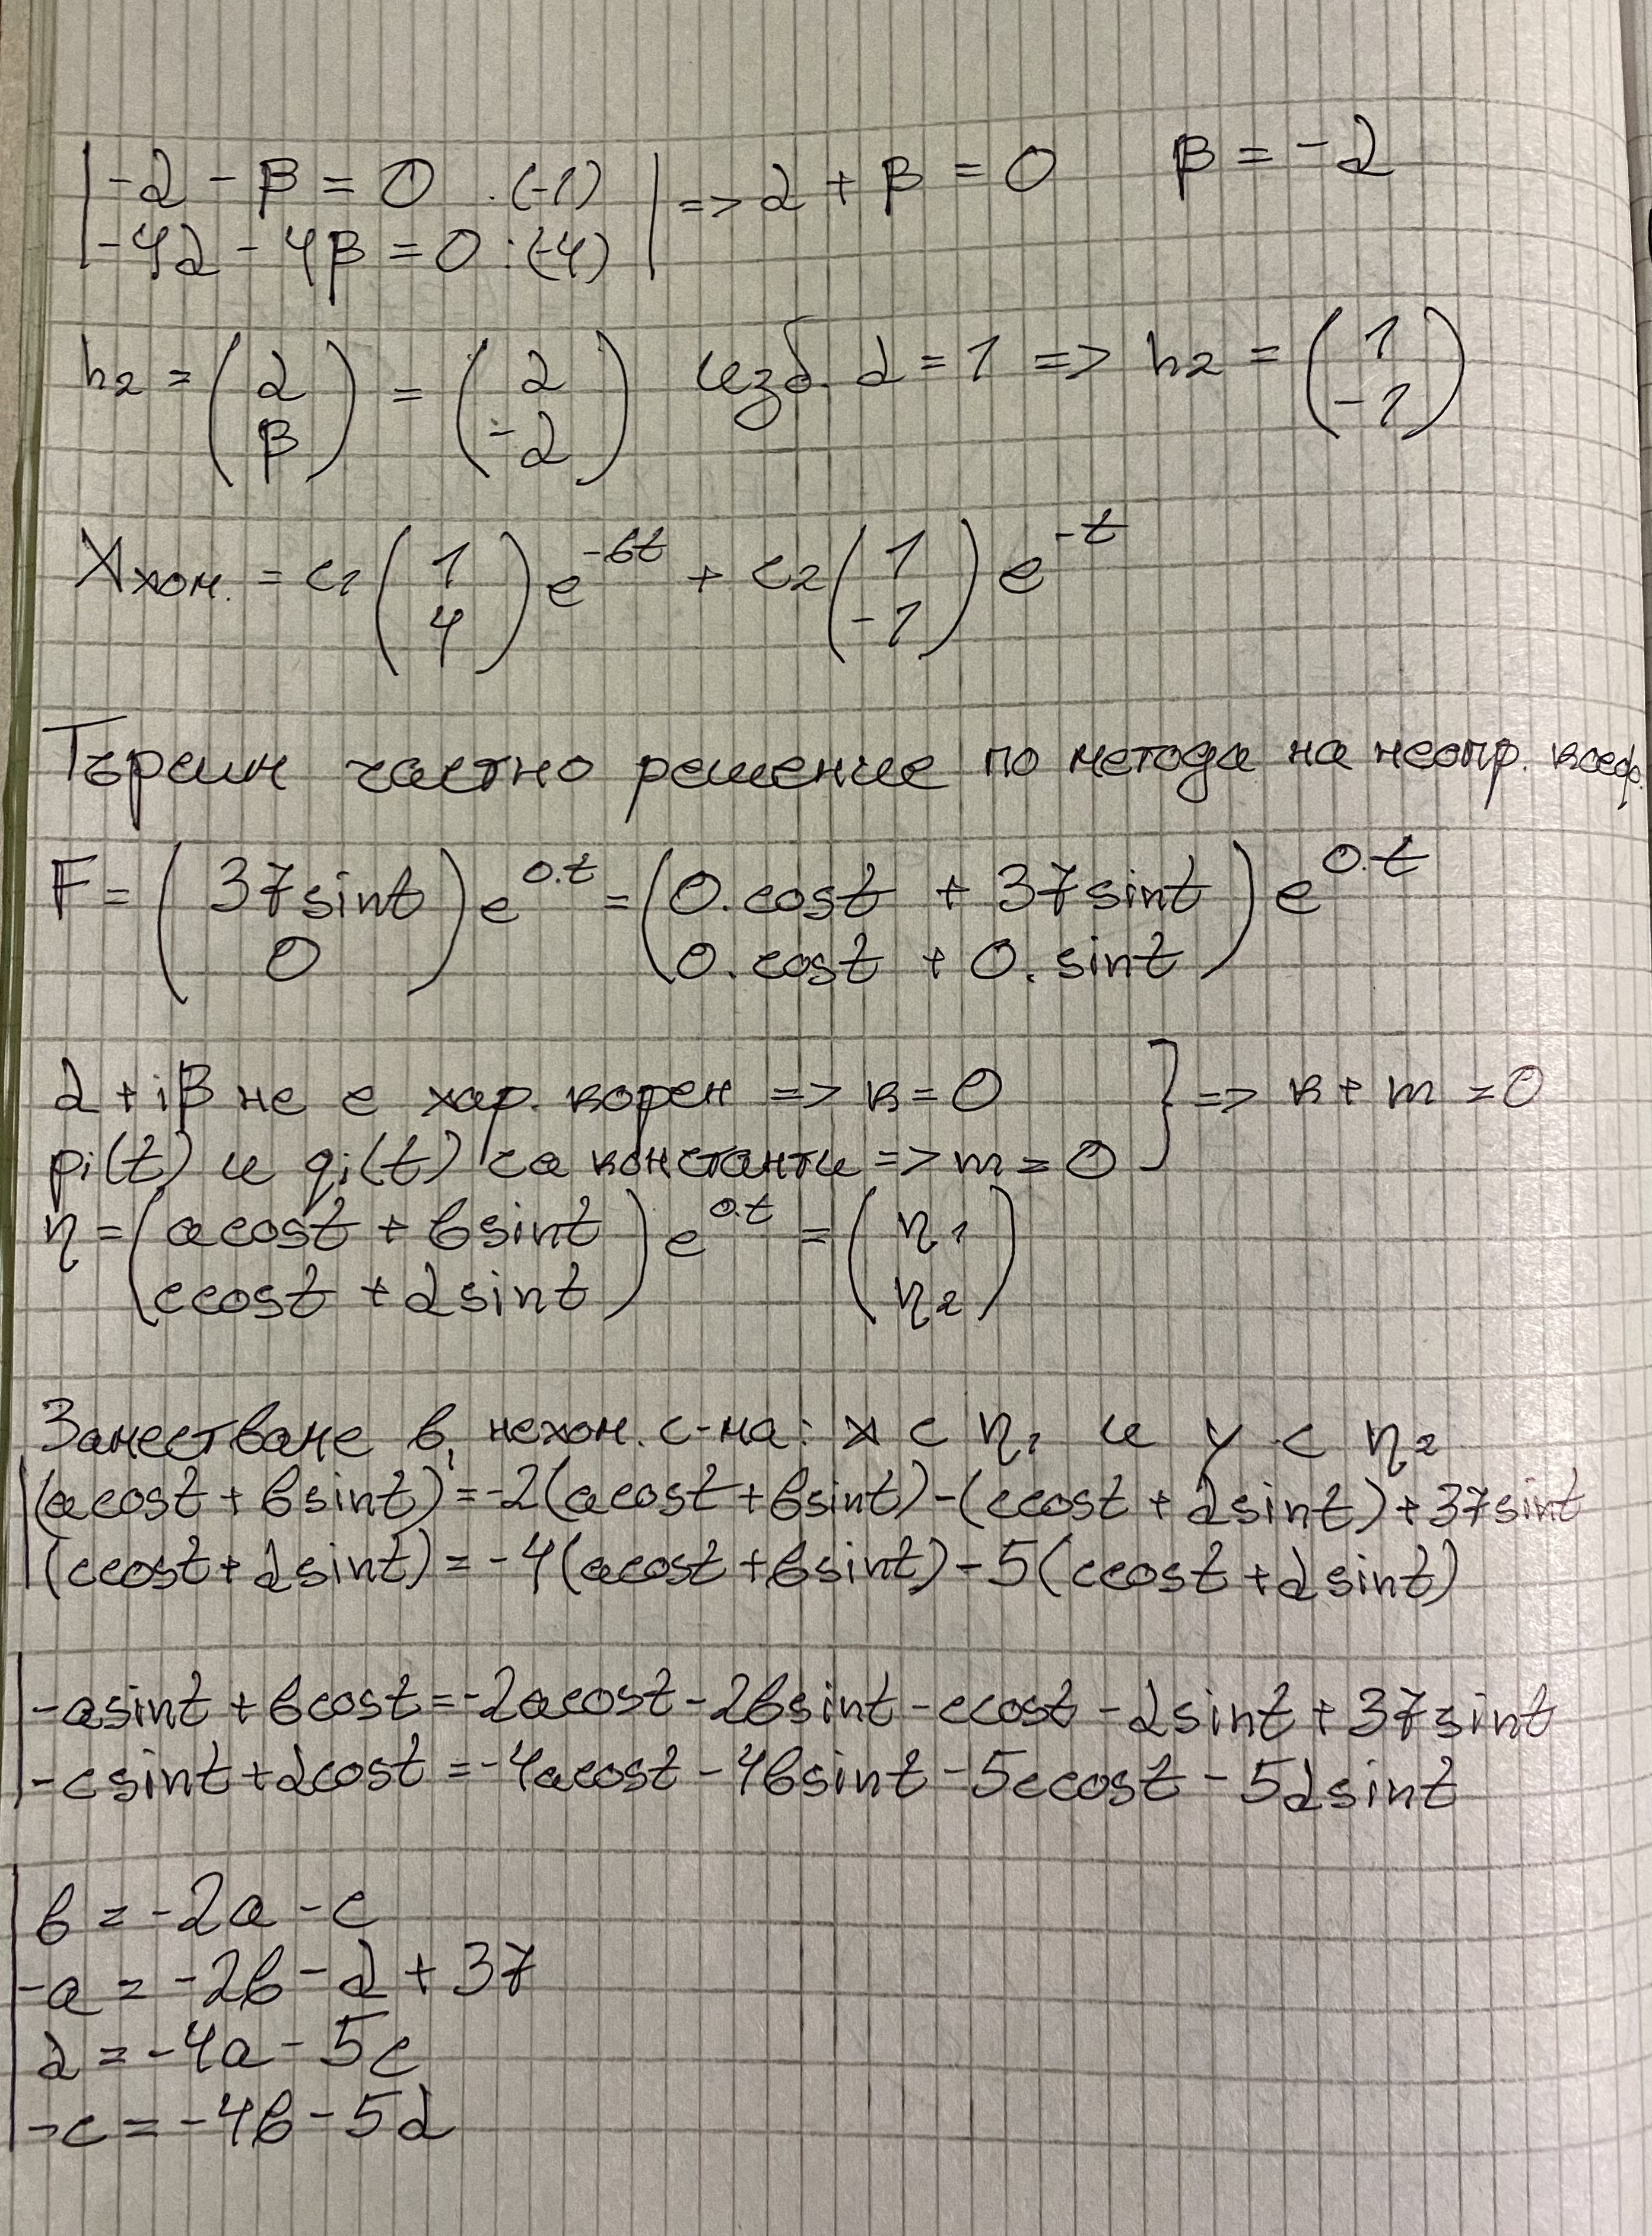 | -α - β = 0 .(-1) | => α + β = 0 β = -α
| -4α - 4β = 0 :(-4) |
h₂ = (α β) = (α -α) изб. α = 1 => h₂ = (1 -1)
Xхом. = c₁ (1 4) e^-6t + c₂ (1 -1) e^-t
Търсим частно решение по метода на неопр. коеф.
F = (37sint 0) e^0.t = (0.cost + 37sint 0.cost + 0.sint) e^0.t
α + iβ не е хар. корен => k = 0 } => k + m = 0
pi(t) и qi(t) са константи => m = 0
η = (acost + bsint ccost + dsint) e^0.t = (η₁ η₂)
Заместваме в нехом. с-ма: x с η₁ и y с η₂
| (acost + bsint)' = -2(acost + bsint) - (ccost + dsint) + 37sint
| (ccost + dsint) = -4(acost + bsint) - 5(ccost + dsint)
| -asint + bcost = -2acost - 2bsint - ccost - dsint + 37sint
| -csint + dcost = -4acost - 4bsint - 5ccost - 5dsint
| b = -2a - c
| -a = -2b - d + 37
| d = -4a - 5c
| -c = -4b - 5d